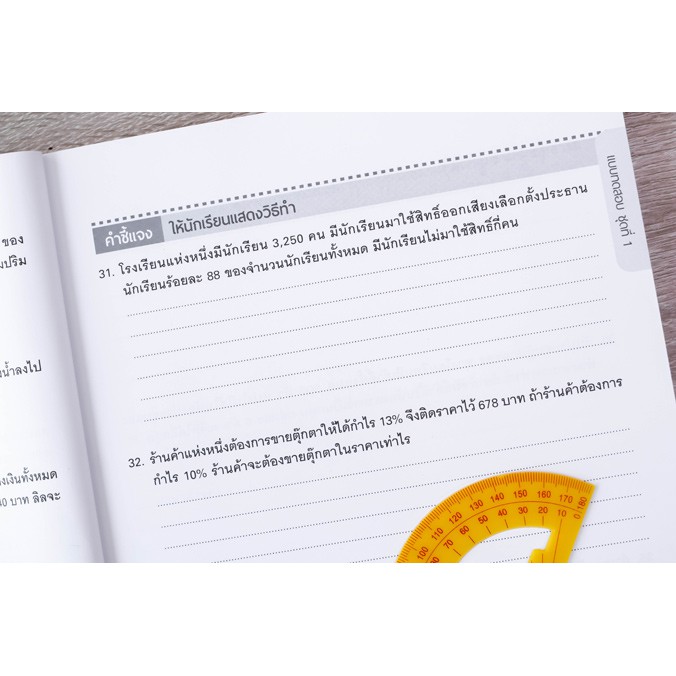 แบบทดสอบ ชุดที่ 1
คำชี้แจง ให้นักเรียนแสดงวิธีทำ
31. โรงเรียนแห่งหนึ่งมีนักเรียน 3,250 คน มีนักเรียนมาใช้สิทธิ์ออกเสียงเลือกตั้งประธาน
นักเรียนร้อยละ 88 ของจำนวนนักเรียนทั้งหมด มีนักเรียนไม่มาใช้สิทธิ์กี่คน
32. ร้านค้าแห่งหนึ่งต้องการขายตุ๊กตาให้ได้กำไร 13% จึงติดราคาไว้ 678 บาท ถ้าร้านค้าต้องการ
กำไร 10% ร้านค้าจะต้องขายตุ๊กตาในราคาเท่าไร
ของ
ปริม
น้ำลงไป
งเงินทั้งหมด
40 บาท ลิลจะ
100 110 120 130 140 150 160 170 180
70 60 50 40 30 20 10 0